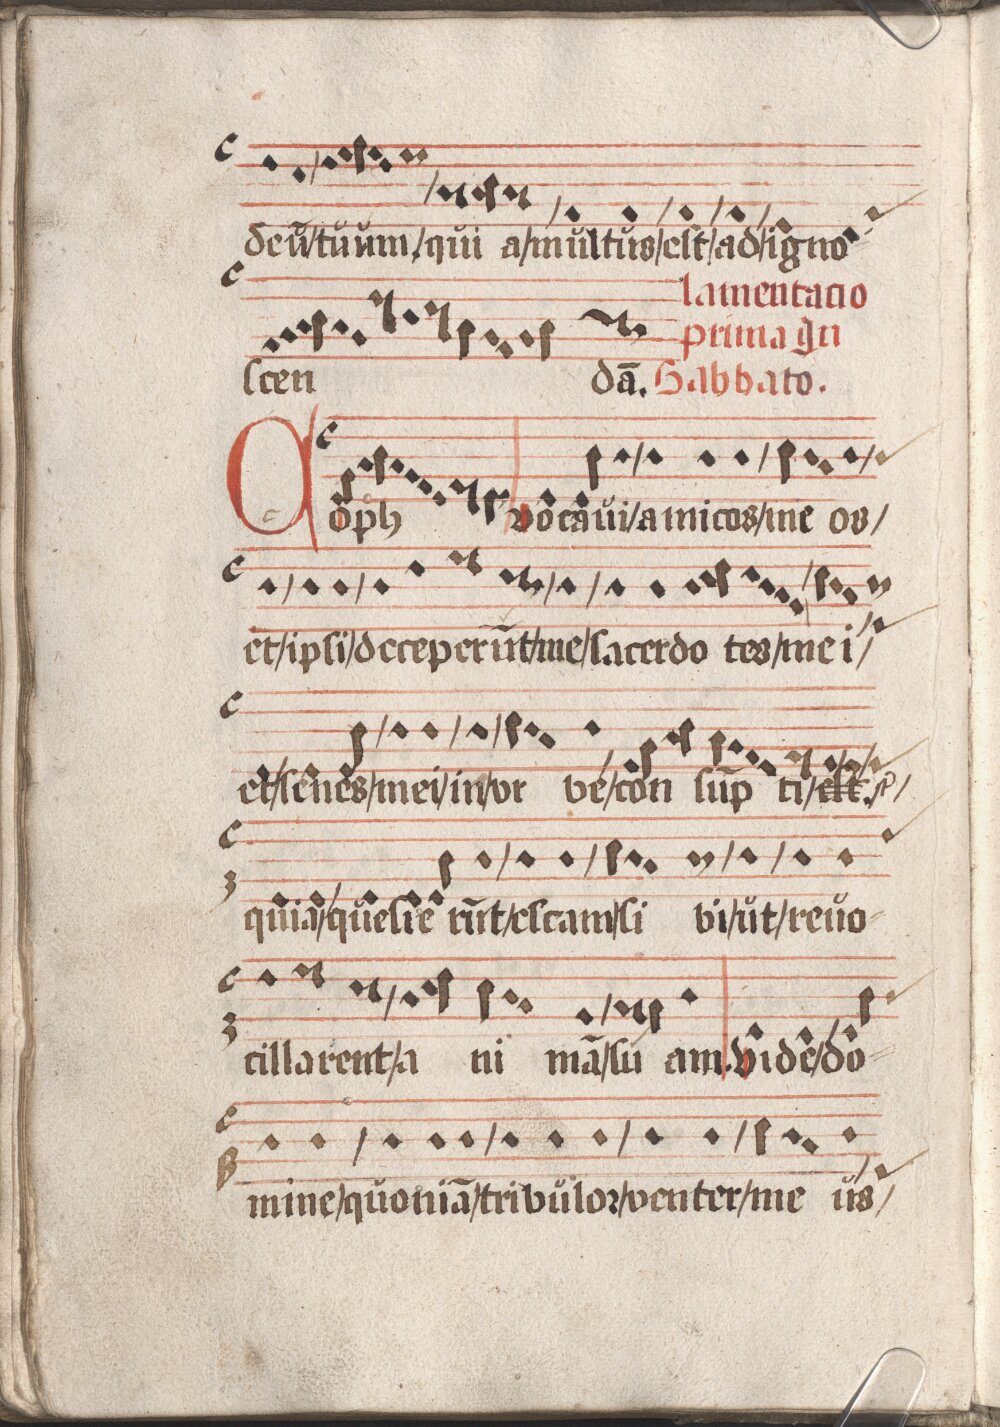 deū/tuum/qui a/multus/est/ad/igno
scen dā.
lamentacio
prima In
Sabbato.
Coph vocaui/amicos/me os/
et/ipsi/deceperūt/me/sacerdo tes/mei/
et/senes/mei/in/vr be/con sūp ti/
quia/quesie rūt/escam/si bi/ut/reuo-
cillarent/a ni mā/su am. Vide/do-
mine/quoniā/tribulor/venter/me us/